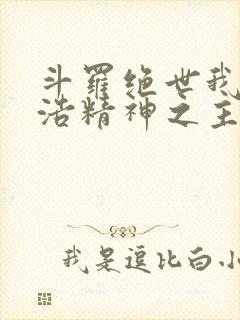 斗羅绝世我
浩精神之主
我是逗比白小